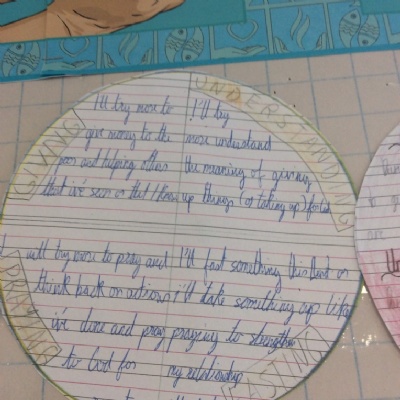 GIVING
I'll try more to
give money to the
poor and helping others
that i've seen or that I know
UNDERSTANDING
I'll try
more understand
the meaning of giving
up things (or taking up) for lent
PRAYING
will try more to pray and
think back on actions
i've done and pray
to God for
FASTING
I'll fast something this lent or
i'll take something up like
praying to strengthen
my relationship